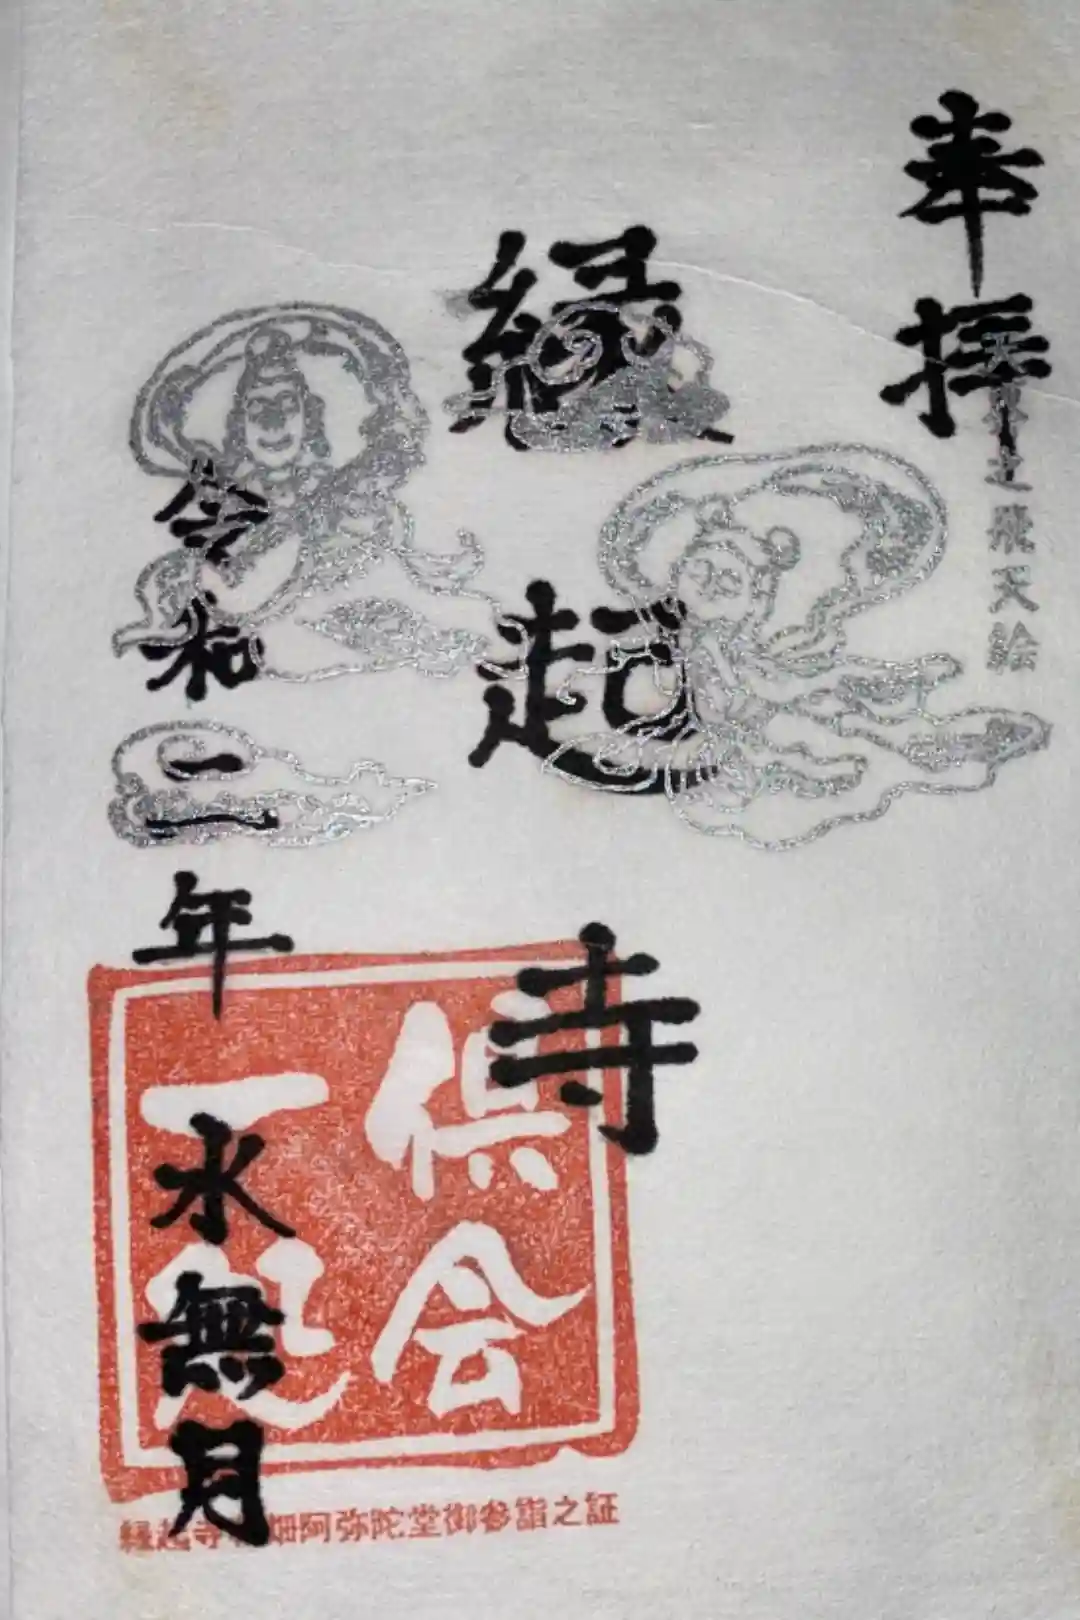 奉拝
之飛天絵
縁起寺
令和二年水無月
倶会
一処
縁起寺 畑阿弥陀堂御参詣之証